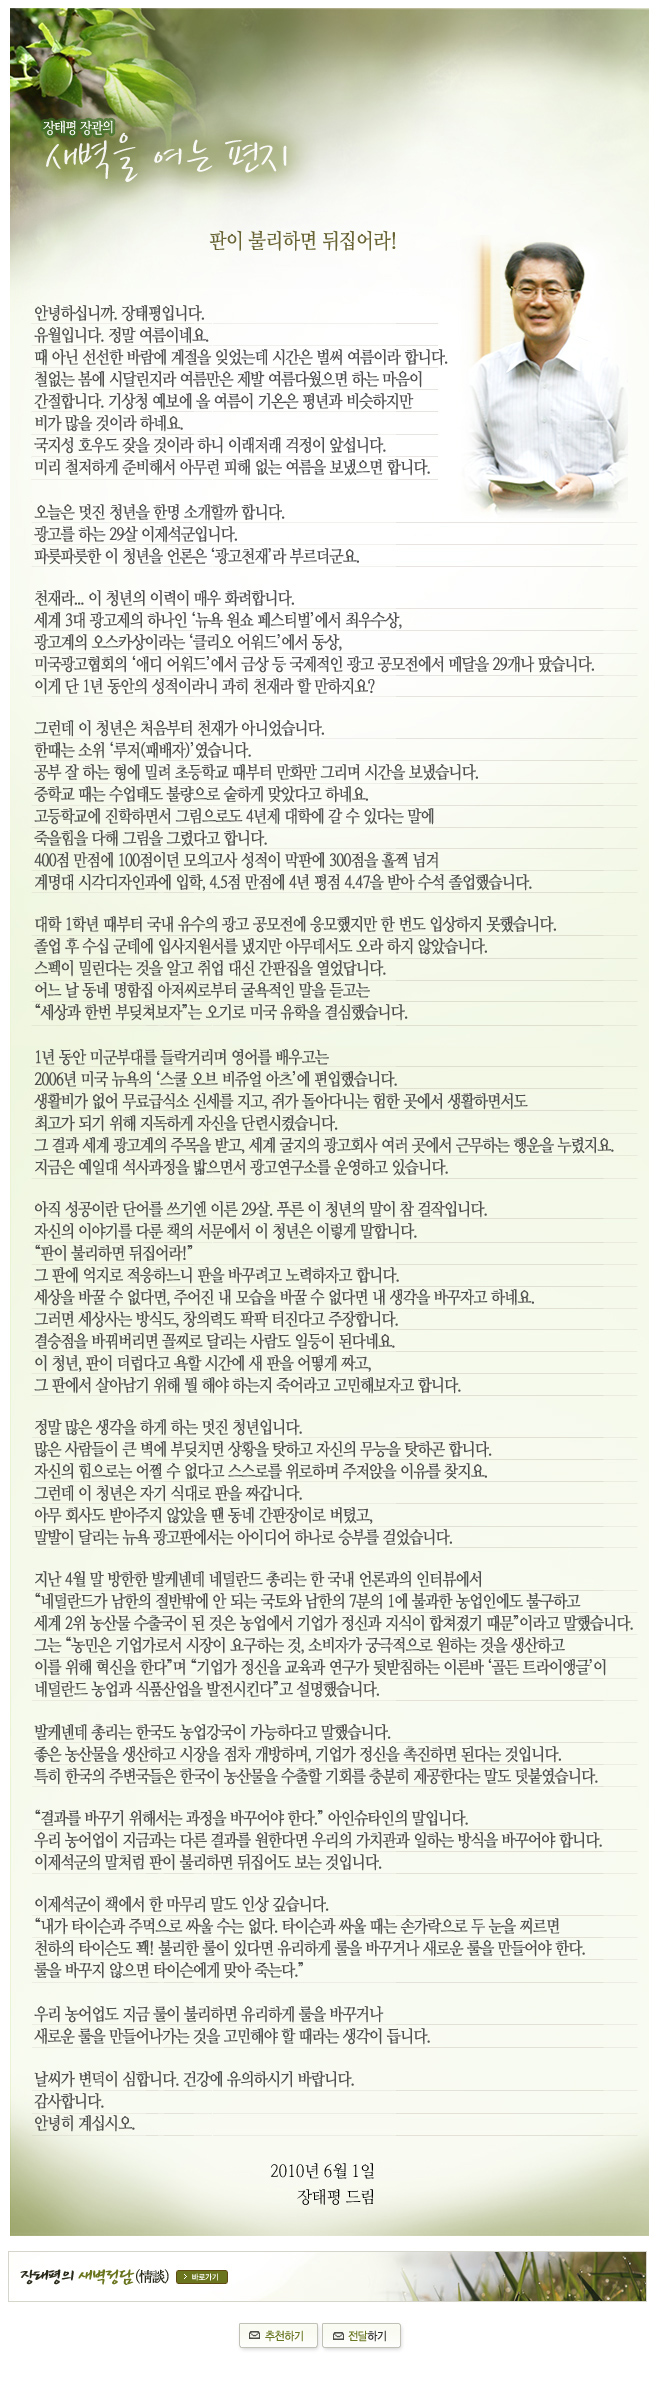 장태평 장관의
새벽을 여는 편지
판이 불리하면 뒤집어라!
안녕하십니까. 장태평입니다.
유월입니다. 정말 여름이네요.
때 아닌 선선한 바람에 계절을 잊었는데 시간은 벌써 여름이라 합니다.
철없는 봄에 시달린지라 여름만은 제발 여름다웠으면 하는 마음이
간절합니다. 기상청 예보에 올 여름이 기온은 평년과 비슷하지만
비가 많을 것이라 하네요.
국지성 호우도 잦을 것이라 하니 이래저래 걱정이 앞섭니다.
미리 철저하게 준비해서 아무런 피해 없는 여름을 보냈으면 합니다.
오늘은 멋진 청년을 한명 소개할까 합니다.
광고를 하는 29살 이제석군입니다.
파릇파릇한 이 청년을 언론은 ‘광고천재’라 부르더군요.
천재라... 이 청년의 이력이 매우 화려합니다.
세계 3대 광고제의 하나인 ‘뉴욕 원쇼 페스티벌’에서 최우수상,
광고계의 오스카상이라는 ‘클리오 어워드’에서 동상,
미국광고협회의 ‘애디 어워드’에서 금상 등 국제적인 광고 공모전에서 메달을 29개나 땄습니다.
이게 단 1년 동안의 성적이라니 과히 천재라 할 만하지요?
그런데 이 청년은 처음부터 천재가 아니었습니다.
한때는 소위 ‘루저(패배자)’였습니다.
공부 잘 하는 형에 밀려 초등학교 때부터 만화만 그리며 시간을 보냈습니다.
중학교 때는 수업태도 불량으로 숱하게 맞았다고 하네요.
고등학교에 진학하면서 그림으로도 4년제 대학에 갈 수 있다는 말에
죽을힘을 다해 그림을 그렸다고 합니다.
400점 만점에 100점이던 모의고사 성적이 막판에 300점을 훌쩍 넘겨
계명대 시각디자인과에 입학, 4.5점 만점에 4년 평점 4.47을 받아 수석 졸업했습니다.
대학 1학년 때부터 국내 유수의 광고 공모전에 응모했지만 한 번도 입상하지 못했습니다.
졸업 후 수십 군데에 입사지원서를 냈지만 아무데서도 오라 하지 않았습니다.
스펙이 밀린다는 것을 알고 취업 대신 간판집을 열었답니다.
어느 날 동네 명함집 아저씨로부터 굴욕적인 말을 듣고는
“세상과 한번 부딪쳐보자”는 오기로 미국 유학을 결심했습니다.
1년 동안 미군부대를 들락거리며 영어를 배우고는
2006년 미국 뉴욕의 ‘스쿨 오브 비쥬얼 아츠’에 편입했습니다.
생활비가 없어 무료급식소 신세를 지고, 쥐가 돌아다니는 험한 곳에서 생활하면서도
최고가 되기 위해 지독하게 자신을 단련시켰습니다.
그 결과 세계 광고계의 주목을 받고, 세계 굴지의 광고회사 여러 곳에서 근무하는 행운을 누렸지요.
지금은 예일대 석사과정을 밟으면서 광고연구소를 운영하고 있습니다.
아직 성공이란 단어를 쓰기엔 이른 29살. 푸른 이 청년의 말이 참 걸작입니다.
자신의 이야기를 다룬 책의 서문에서 이 청년은 이렇게 말합니다.
“판이 불리하면 뒤집어라!”
그 판에 억지로 적응하느니 판을 바꾸려고 노력하자고 합니다.
세상을 바꿀 수 없다면, 주어진 내 모습을 바꿀 수 없다면 내 생각을 바꾸자고 하네요.
그러면 세상사는 방식도, 창의력도 팍팍 터진다고 주장합니다.
결승점을 바꿔버리면 꼴찌로 달리는 사람도 일등이 된다네요.
이 청년, 판이 더럽다고 욕할 시간에 새 판을 어떻게 짜고,
그 판에서 살아남기 위해 뭘 해야 하는지 죽어라고 고민해보자고 합니다.
정말 많은 생각을 하게 하는 멋진 청년입니다.
많은 사람들이 큰 벽에 부딪치면 상황을 탓하고 자신의 무능을 탓하곤 합니다.
자신의 힘으로는 어쩔 수 없다고 스스로를 위로하며 주저앉을 이유를 찾지요.
그런데 이 청년은 자기 식대로 판을 짜갑니다.
아무 회사도 받아주지 않았을 땐 동네 간판장이로 버텼고,
말발이 달리는 뉴욕 광고판에서는 아이디어 하나로 승부를 걸었습니다.
지난 4월 말 방한한 발케넨데 네덜란드 총리는 한 국내 언론과의 인터뷰에서
“네덜란드가 남한의 절반밖에 안 되는 국토와 남한의 7분의 1에 불과한 농업인에도 불구하고
세계 2위 농산물 수출국이 된 것은 농업에서 기업가 정신과 지식이 합쳐졌기 때문”이라고 말했습니다.
그는 “농민은 기업가로서 시장이 요구하는 것, 소비자가 궁극적으로 원하는 것을 생산하고
이를 위해 혁신을 한다”며 “기업가 정신을 교육과 연구가 뒷받침하는 이른바 ‘골든 트라이앵글’이
네덜란드 농업과 식품산업을 발전시킨다”고 설명했습니다.
발케넨데 총리는 한국도 농업강국이 가능하다고 말했습니다.
좋은 농산물을 생산하고 시장을 점차 개방하며, 기업가 정신을 촉진하면 된다는 것입니다.
특히 한국의 주변국들은 한국이 농산물을 수출할 기회를 충분히 제공한다는 말도 덧붙였습니다.
“결과를 바꾸기 위해서는 과정을 바꾸어야 한다.” 아인슈타인의 말입니다.
우리 농어업이 지금과는 다른 결과를 원한다면 우리의 가치관과 일하는 방식을 바꾸어야 합니다.
이제석군의 말처럼 판이 불리하면 뒤집어도 보는 것입니다.
이제석군이 책에서 한 마무리 말도 인상 깊습니다.
“내가 타이슨과 주먹으로 싸울 수는 없다. 타이슨과 싸울 때는 손가락으로 두 눈을 찌르면
천하의 타이슨도 꽥! 불리한 룰이 있다면 유리하게 룰을 바꾸거나 새로운 룰을 만들어야 한다.
룰을 바꾸지 않으면 타이슨에게 맞아 죽는다.”
우리 농어업도 지금 룰이 불리하면 유리하게 룰을 바꾸거나
새로운 룰을 만들어나가는 것을 고민해야 할 때라는 생각이 듭니다.
날씨가 변덕이 심합니다. 건강에 유의하시기 바랍니다.
감사합니다.
안녕히 계십시오.
2010년 6월 1일
장태평 드림
장태평의 새벽정담(情談) 바로가기
추천하기 전달하기